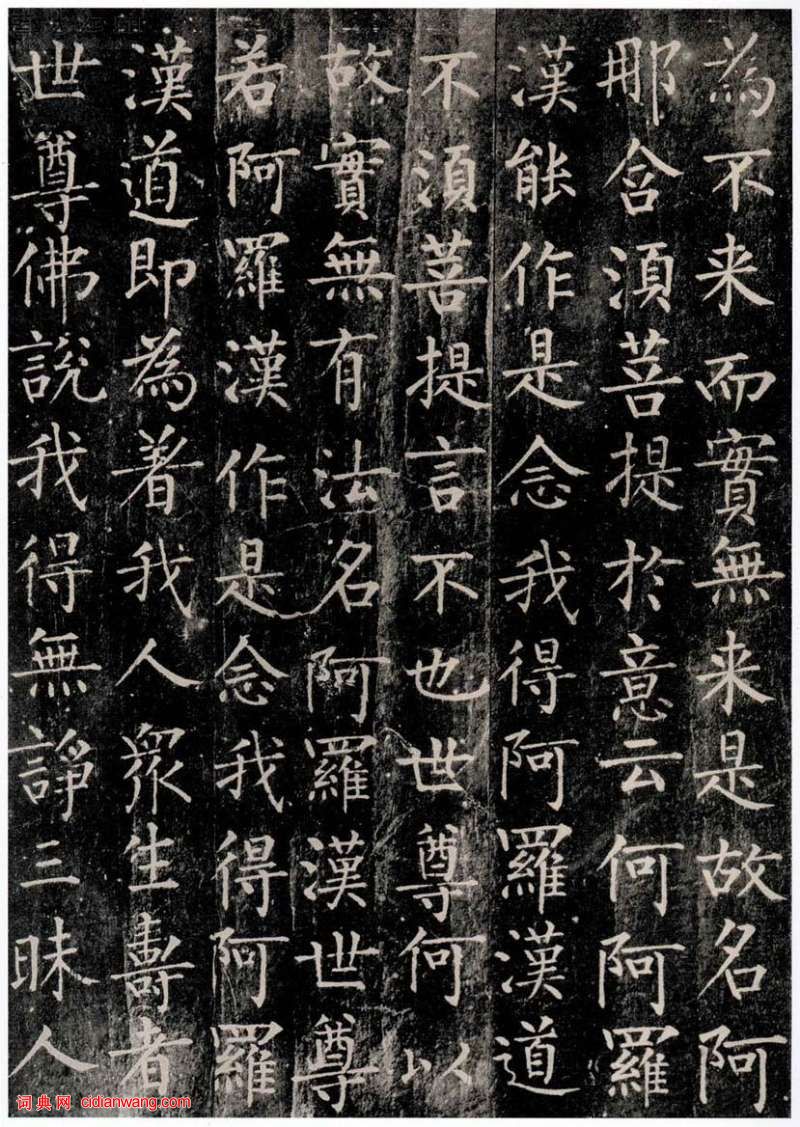 為不来而實無来是故名阿
那含湏菩提於意云何阿羅
漢能作是念我得阿羅漢道
不湏菩提言不也世尊何以
故實無有法名阿羅漢世尊
若阿羅漢作是念我得阿羅
漢道即為着我人衆生壽者
世尊佛說我得無諍三昧人
词典网 cidianwang.com